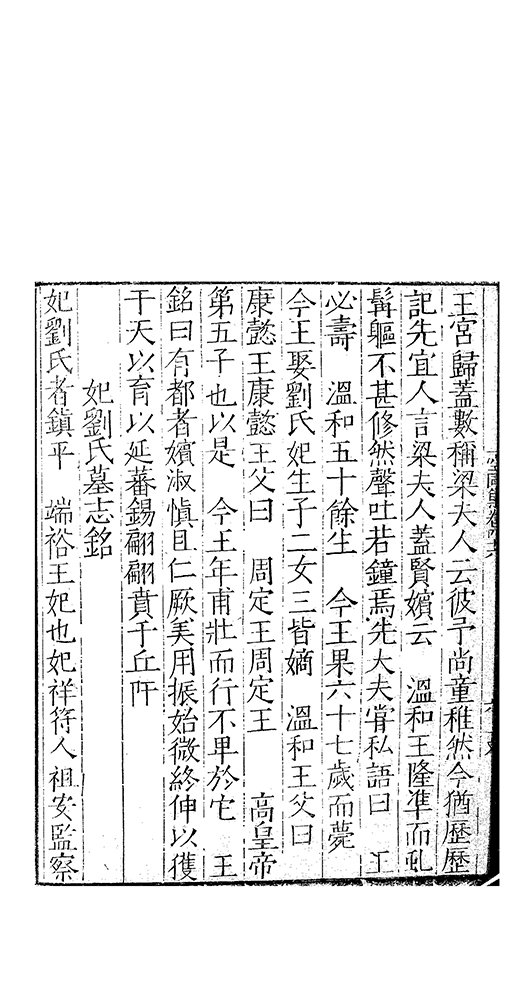 王宮歸蓋數稱梁夫人云彼予尚童稚然今猶歷歷
記先宜人言梁夫人蓋賢嬪云　溫和王隆準而虬
髯軀不甚修然聲吐若鐘焉先大夫嘗私語曰　王
必壽　溫和五十餘生　今王果六十七歲而薨
今王娶劉氏妃生子二女三皆嫡　溫和王父曰
康懿王康懿王父曰　周定王周定王　高皇帝
第五子也以是　今王年甫壯而行不畢於它　王
銘曰有都者嬪淑慎且仁厥美用振始微終伸以獲
于天以育以延蕃錫翩翩賁于丘阡
妃劉氏墓志銘
妃劉氏者鎮平　端裕王妃也妃祥符人祖安監察